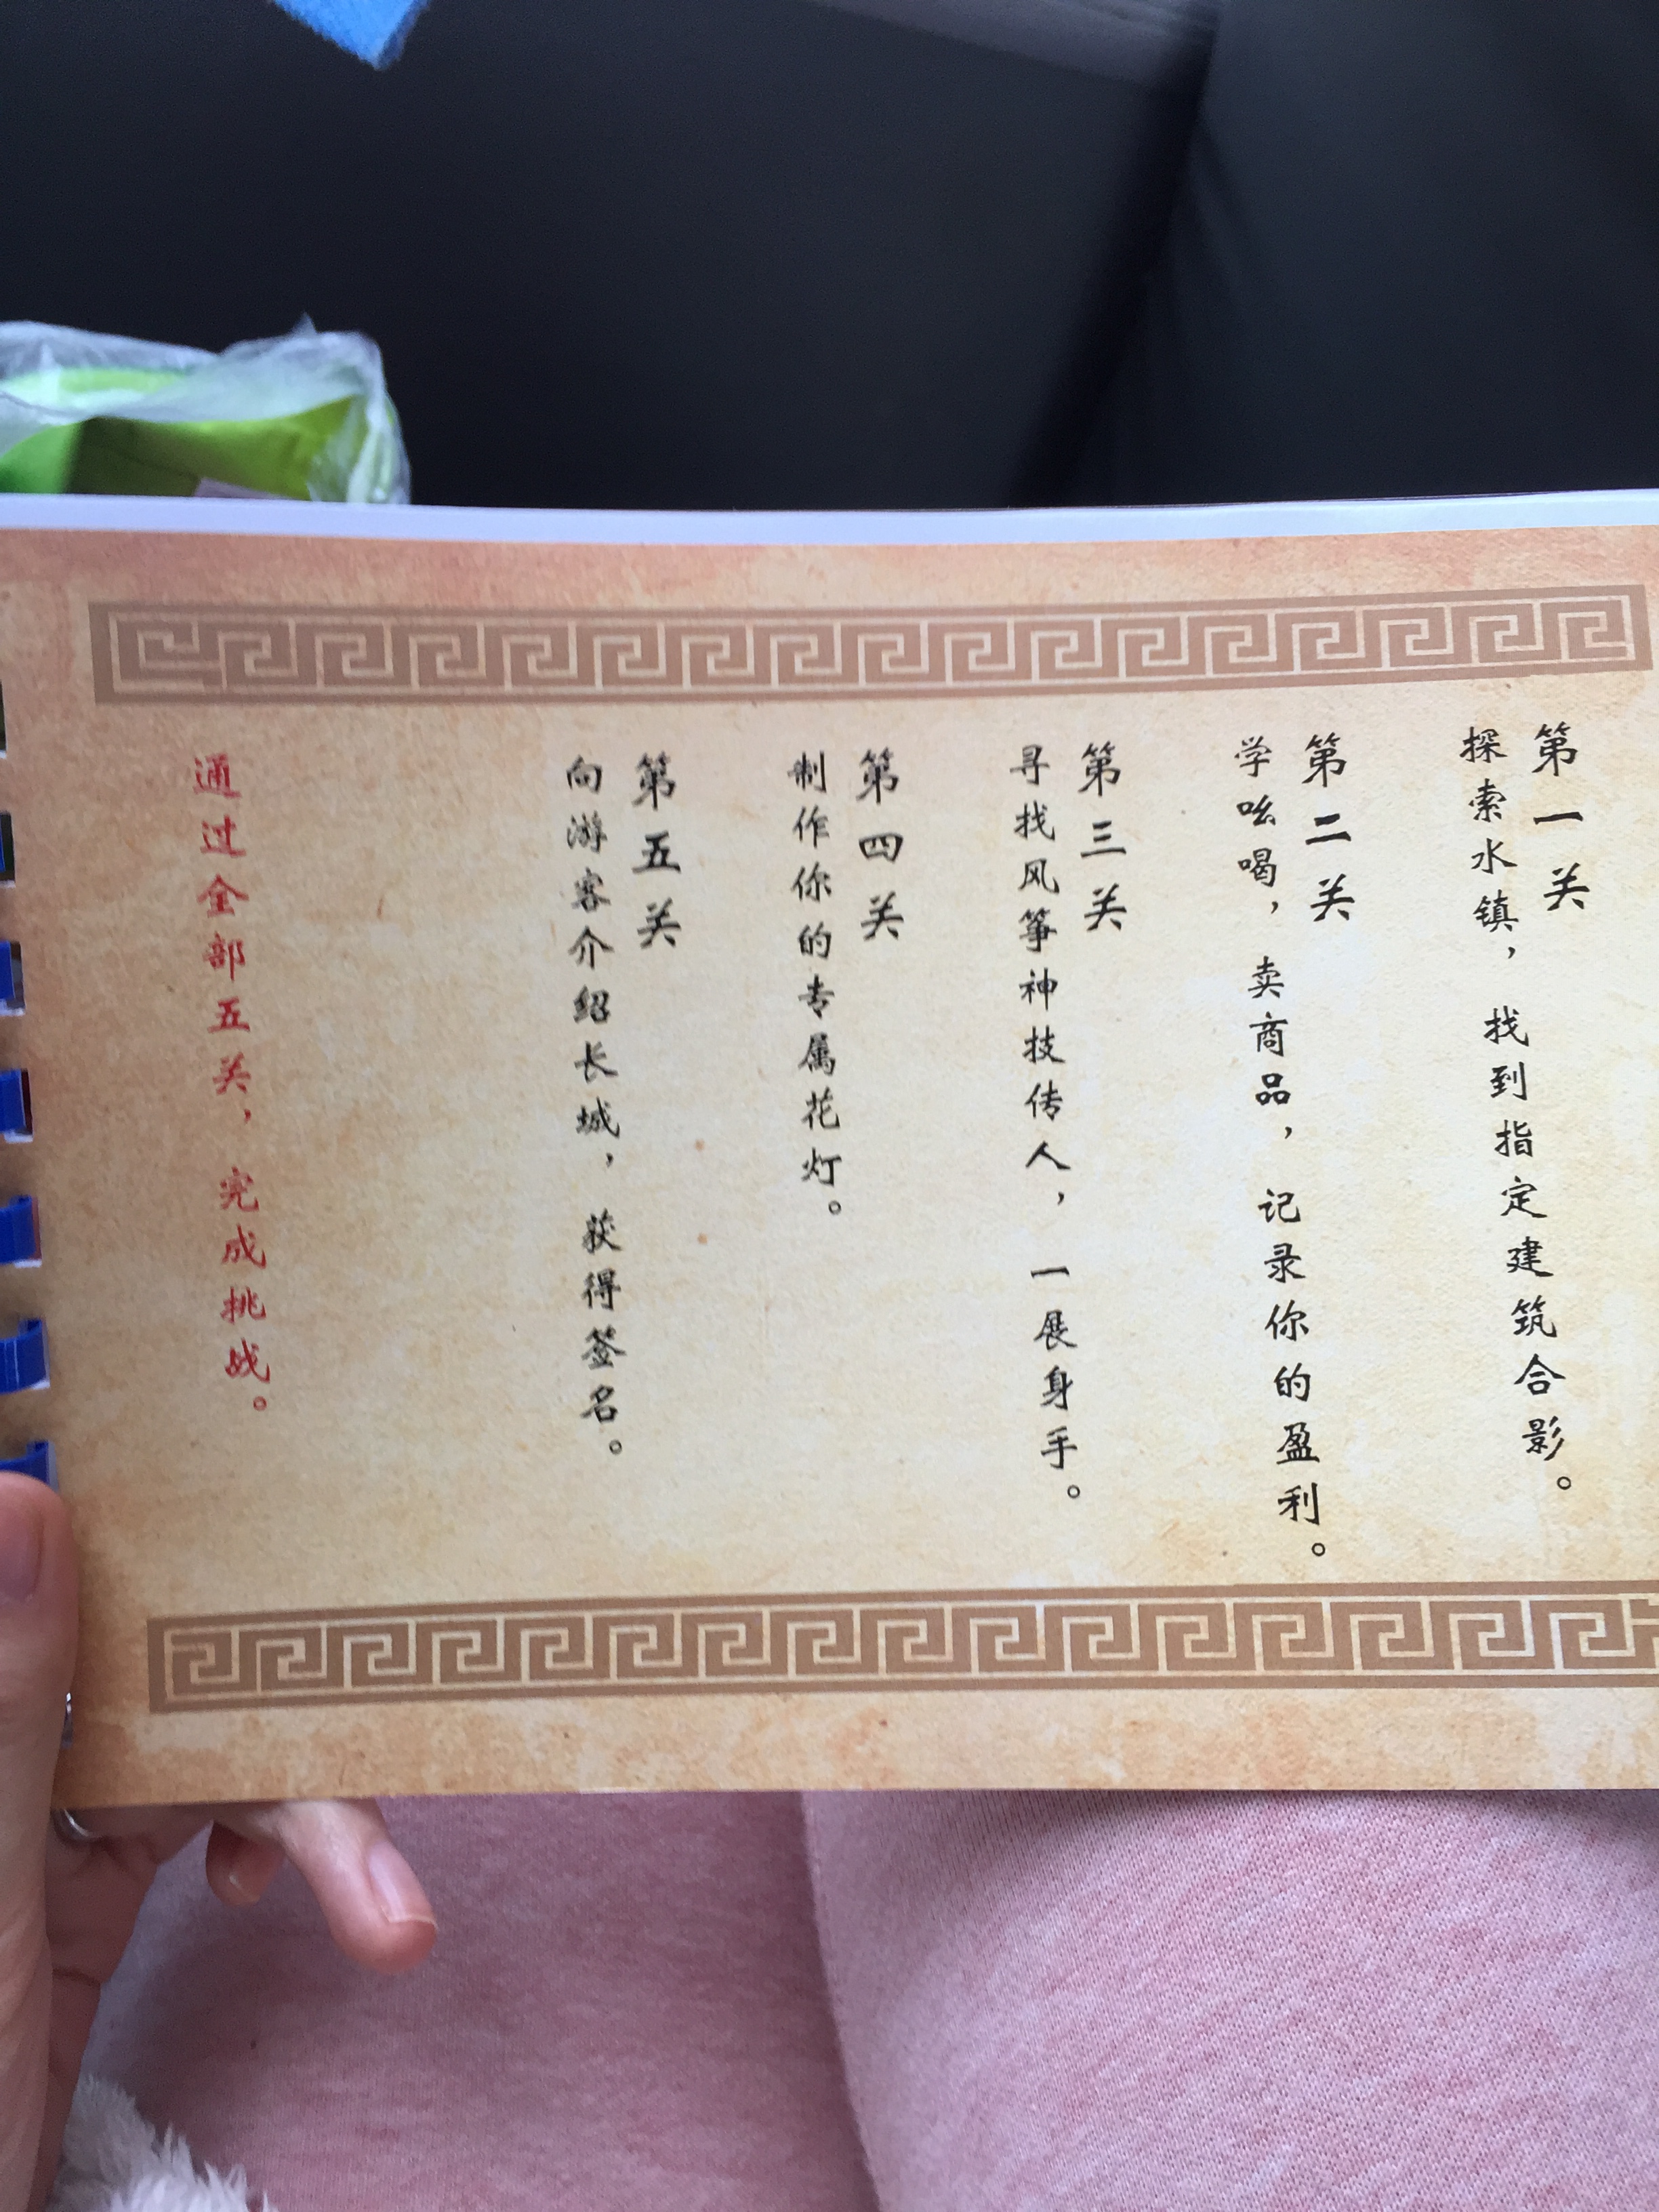 第一关
探索水镇，找到指定建筑合影。
第二关
学吆喝，卖商品，记录你的盈利。
第三关
寻找风筝神技传人，一展身手。
第四关
制作你的专属花灯。
第五关
向游客介绍长城，获得签名。
通过全部五关，完成挑战。